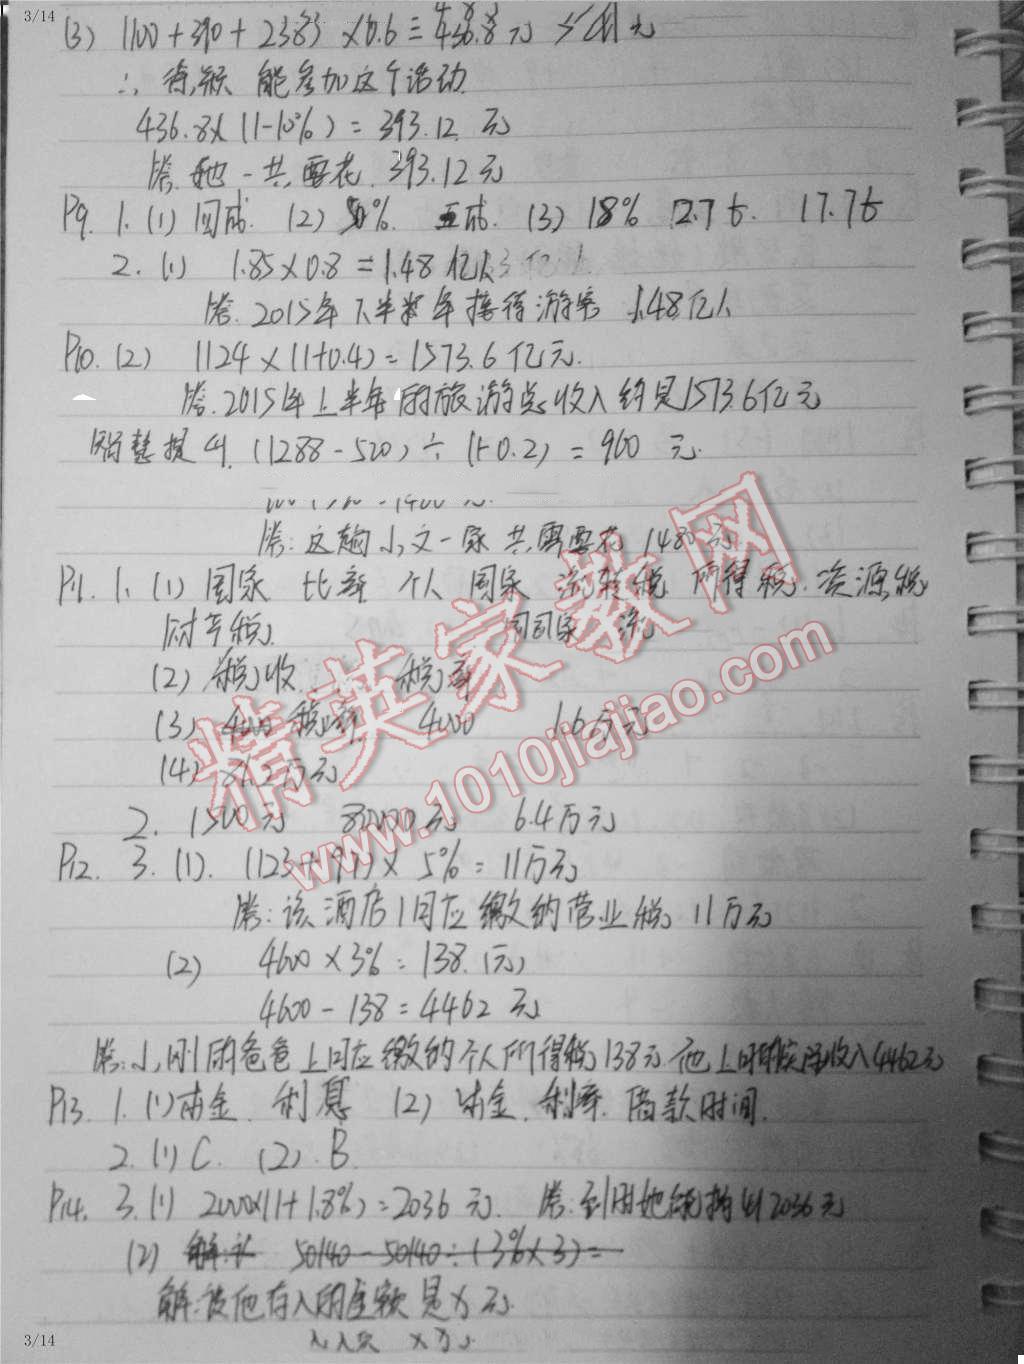 3/14
(3) 1100+390+2383 ×0.6=436.8元
∴ 能参加这个活动
436.8×(1-10%)=393.12元
答:她一共要花393.12元
P9. 1.(1) 四成. (2) 50% 五成. (3) 18% 2.7t. 17.7t
2.(1) 1.85×0.8=1.48亿人
答.2015年下半年接待游客1.48亿人
P10.(2) 1124×(1+0.4)=1573.6亿元.
答.2015年上半年的旅游总收入约是1573.6亿元
智慧提升.(1288-520)÷(1-0.2)=960元.
答:这趟小文一家共需要花1480元
P11. 1.(1) 国家 比率 个人 国家 流转税 所得税.资源税
(2) 税收 税率
(3) 4000 税率 4000 1.6万元
(4) 81.2万元
2. 1500元 80000元 6.4万元
P12. 3.(1). (123+97)×5%=11万元
答:该酒店1月应缴纳营业税11万元
(2) 4600×3%=138(元)
4600-138=4462元
答:小刚的爸爸上月应缴纳个人所得税138元.他上月实际收入4462元
P13. 1.(1)本金.利息 (2)本金.利率.借款时间.
2.(1)C. (2).B.
P14. 3.(1) 2000×(1+1.8%)=2036元. 答:到期她能 2036元
(2) 50140-50140÷(3%×3)=
解:设他存入的金额是x元.
精英家教网
www.1010jiajiao.com
3/14